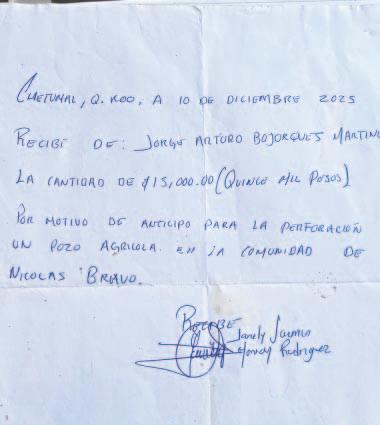 CHETUMAL, Q. ROO, A 10 DE DICIEMBRE 2025
RECIBE DE: JORGE ARTURO BOJORQUES MARTIN
LA CANTIDAD DE $15,000.00 (QUINCE MIL PESOS)
POR MOTIVO DE ANTICIPO PARA LA PERFORACIÓN
UN POZO AGRICOLA. EN LA COMUNIDAD DE
NICOLAS BRAVO.
RECIBE
Rodriguez